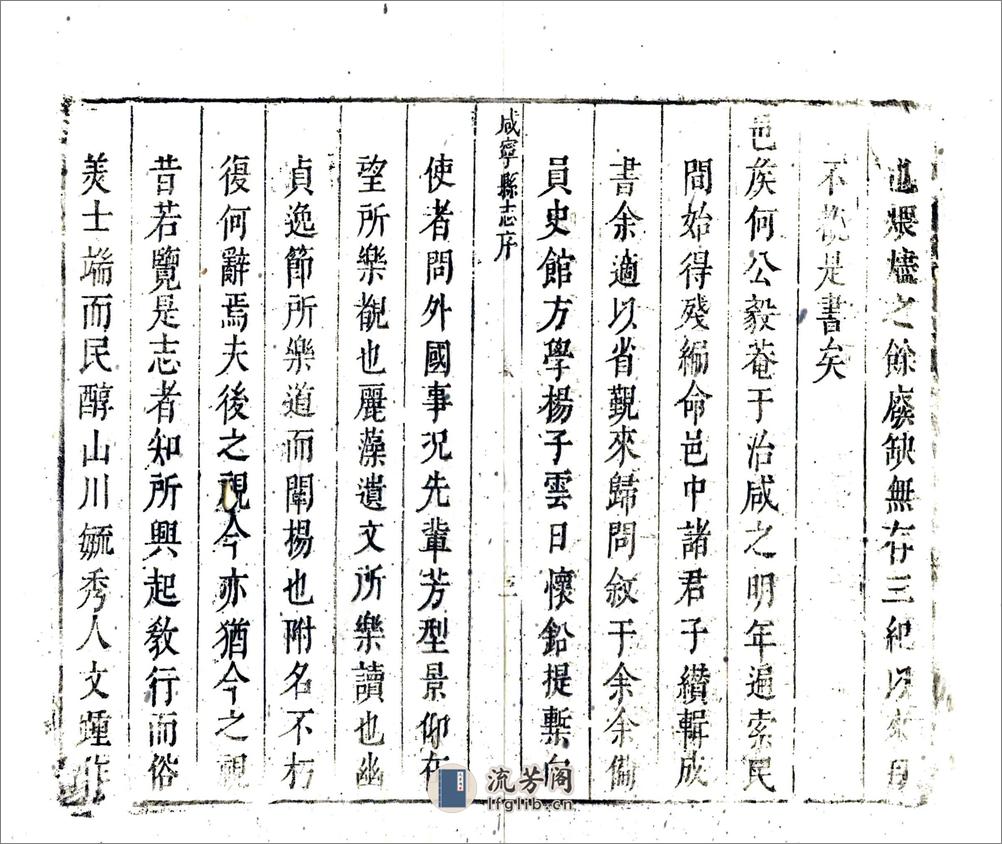 煨燼之餘廢缺無存三紀以來
不是書矣
邑矦何公毅菴于治咸之明年遍索民
間始得殘編命邑中諸君子纘輯成
書余適以省覲來歸問敘于余余備
員史館方學楊子雲日懷鉛提槧向
咸寧縣志序
使者問外國事况先輩芳型景仰在
望所樂覩也麗藻遺文所樂讀也幽
貞逸節所樂道而闡楊也附名不朽
復何辭焉夫後之視今亦猶今之視
昔若覽是志者知所興起敎行而俗
美士端而民醇山川毓秀人文踵作
流芳阁
lfglib.cn